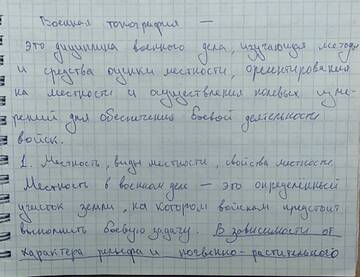 Военная топография —
это дисциплина военного дела, изучающая методы
и средства оценки местности, ориентирования
на местности и осуществления полевых изме-
рений для обеспечения боевой деятельности
войск.
1. Местность, виды местности, свойства местности.
Местность в военном деле — это определенный
участок земли, на котором войскам предстоит
выполнить боевую задачу. В зависимости от
характера рельефа и почвенно-растительного